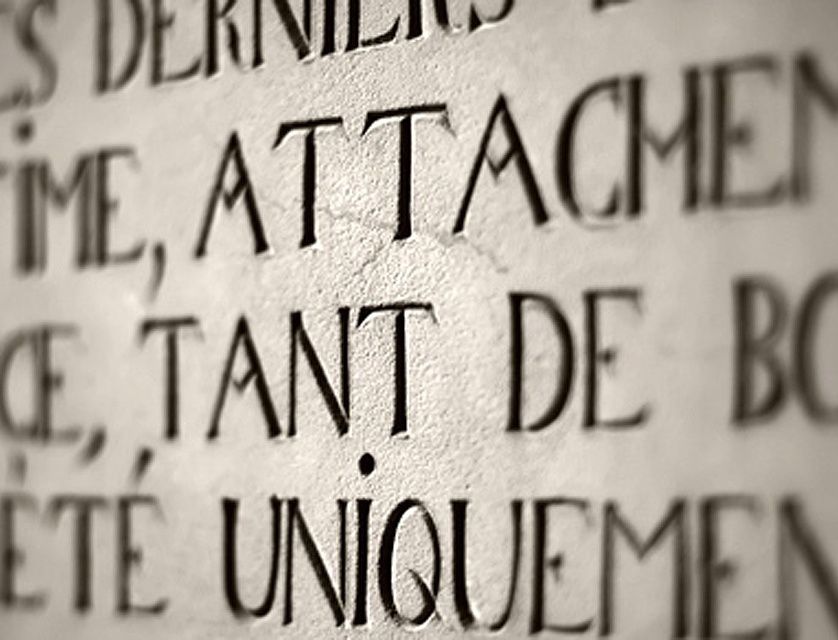 ES DERNIERS
TIME, ATTACHEMEN
CE, TANT DE BO
ÉTÉ UNIQUEMEN